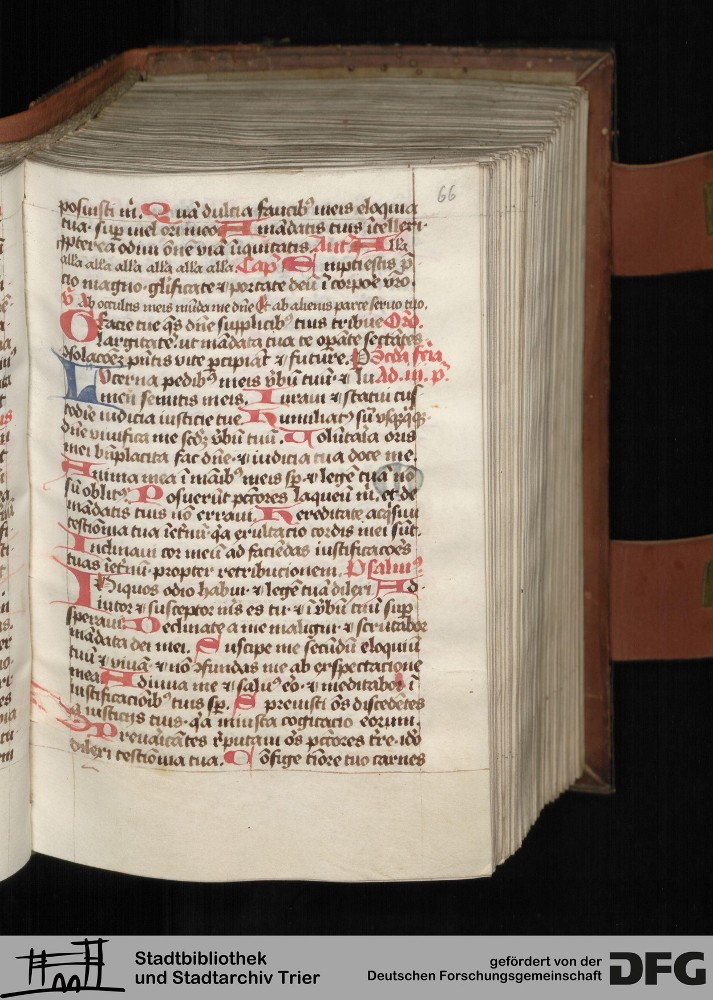 66
posuisti m̄. Quā dulcia faucibꝯ meis eloquia
tua · suꝑ mel ori meo A mādatis tuis ītellexi ·
ꝓpterea odiui ōnē viā īiquitatis Ant̄ Alla
alla alla alla alla alla alla Cap̄ Empti estis p̄
cio magno · glificate ⁊ portate deū ī corpoꝛe vr̄o
v̄ Ab occultis meis mūda me dn̄e Et ab alienis parce seruo tuo.
O facie tue q̄s dn̄e supplicibꝯ tuis tribue Orō.
largitatē · ut mādata tua te opāte sectātes
ꝯsolacōeꝫ p̄ntis vite ꝑcipiāt ⁊ future. Scda feria
Lucerna pedibꝯ meis v̄bū tuū · ⁊ lu Ad. iij. p̄.
men semitis meis. Iuraui ⁊ statui cus
todire iudicia iusticie tue. Humiliatꝯ sū vsqꝫqꝫ ·
dn̄e viuifica me scdꝫ v̄bū tuū. Volūtaria oris
mei bn̄placita fac dn̄e · ⁊ iudicia tua doce me.
Anima mea ī maibꝯ meis sꝑ · ⁊ legē tuā nō
sū oblitꝯ. Posuerūt pctōres laqueū m̄. et de
mādatis tuis nō erraui. Hereditate acq̄siui
testiōnia tua īet̄nū · q̄a exultacio cordis mei sūt.
Inclinaui cor meū ad faciēdas iustificacoēs
tuas īet̄nū propter retribucionem. Psalmꝯ
Iniquos odio habui · ⁊ legē tuā dilexi Ad ·
iutor ⁊ susceptor ms̄ es tu · ⁊ ī v̄bū tuū suꝑ
speraui. Declinate a me maligni · ⁊ scrutabor
mādata dei mei. Suscipe me secūdū eloquiū
tuū ⁊ viuā · ⁊ nō ꝯfundas me ab exspectacione
mea Adiuua me ⁊ saluꝯ ero · ⁊ meditabor ī
iustificacōibꝯ tuis sꝑ. Spreuisti ōs discedētes
a iusticijs tuis · q̄a iniusta cogitacio eorum.
Preuaricātes r̄putaui ōs pctōres tr̄e · idō
dilexi testiōnia tua. Cōfige tiōre tuo carnes
Stadtbibliothek
und Stadtarchiv Trier
gefördert von der
Deutschen Forschungsgemeinschaft DFG